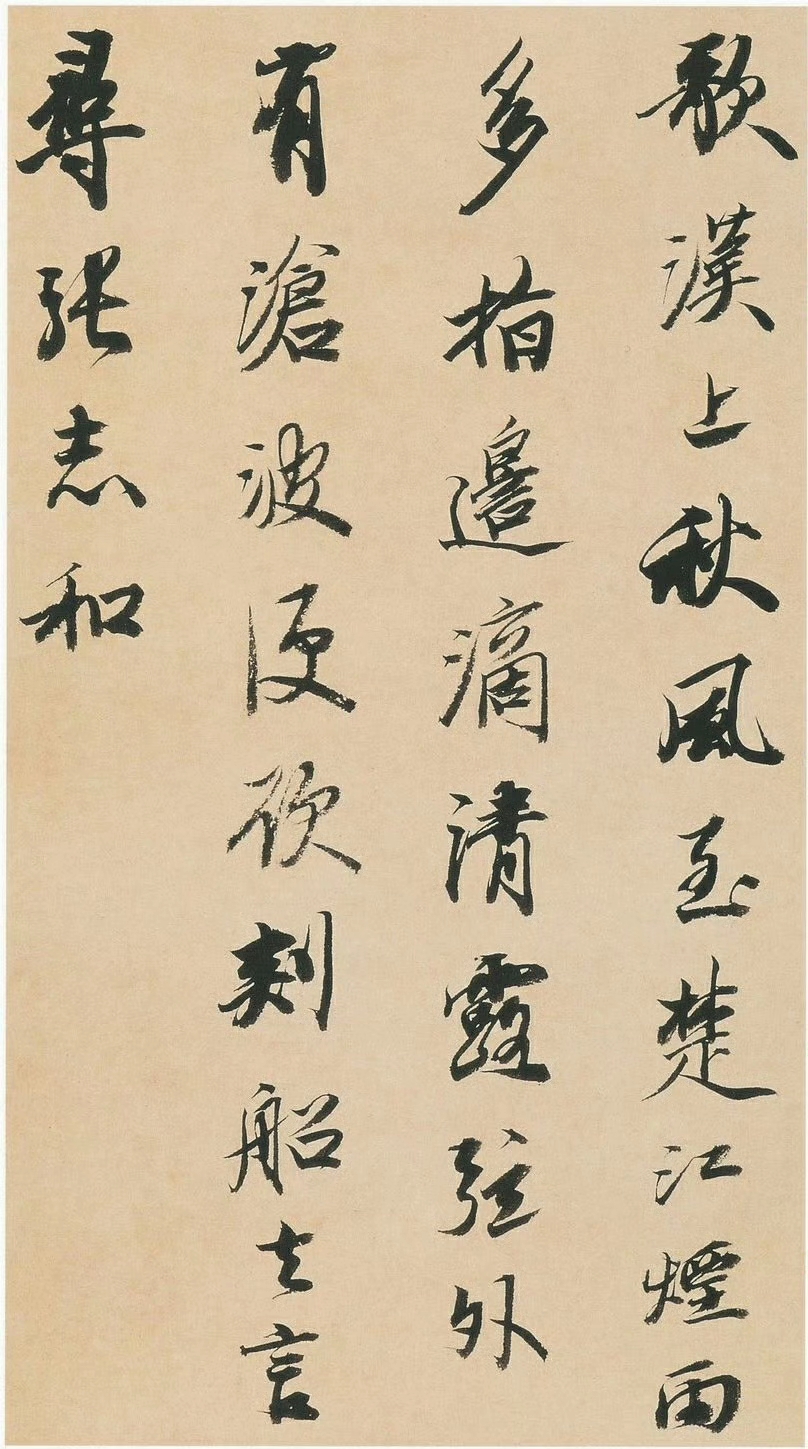 歌漢上秋風至楚江煙雨
多指邊滴清露弦外
有滄波便欲刺船去言
尋張志和